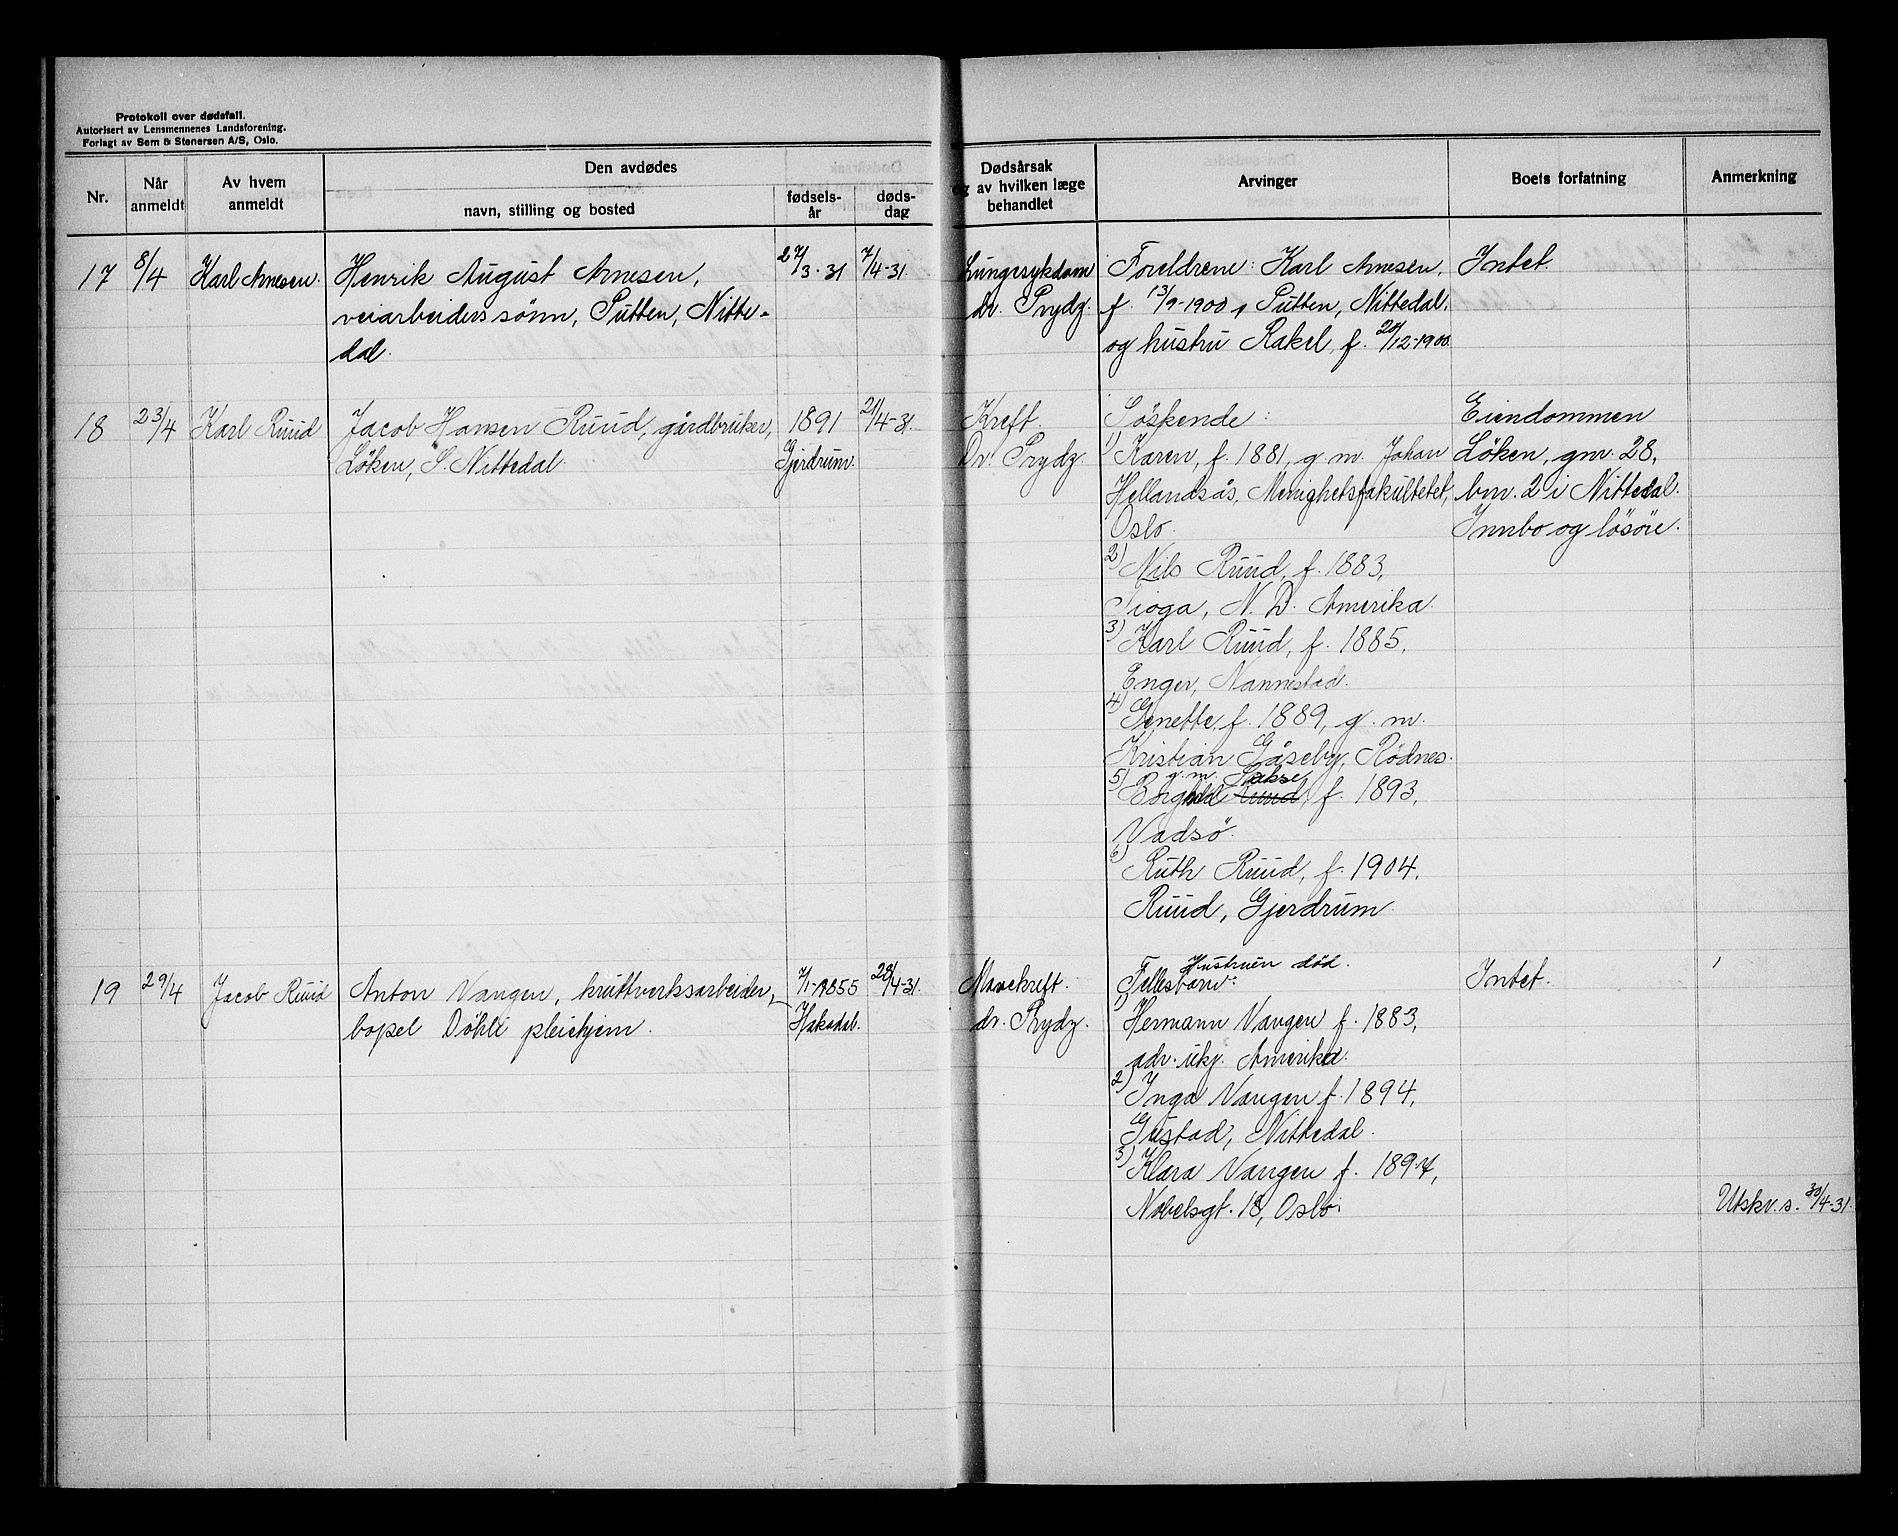 Protokoll over dødsfall.
Autorisert av Lensmennenes Landsforening.
Forlagt av Sem & Stenersen A/S, Oslo.
Nr.
Når anmeldt
Av hvem anmeldt
Den avdødes
navn, stilling og bosted
fødsels-år
døds-dag
Dødsårsak
og av hvilken læge
behandlet
Arvinger
Boets forfatning
Anmerkning
17 8/4 Karl Arnesen. Henrik August Arnesen, 27/3-31 7/4-31. Lungesykdom Foreldrene: Karl Arnesen, Intet.
veiarbeiders sönn, Sutten, Nitte- dr. Prydz. f. 13/9-1900, Sutten, Nittedal,
dal. og hustru Rakel, f. 20/12-1900.
18 23/4 Karl Ruud Jacob Hansen Ruud, gårdbruker, 1891 21/4-31. Kreft. Söskende: Eiendommen
Löken, S. Nittedal. Gjerdrum. Dr. Prydz. 1) Karen, f. 1881, g.m. Johan Löken, gnr. 28,
Hellandsås, Menighetsfakultetet, bnr. 2 i Nittedal.
Oslo. Innbo og lösöre.
2) Nils Ruud, f. 1883,
Tioga, N. D. Amerika.
3) Karl Ruud, f. 1885,
Enger, Nannestad.
4) Ginette, f. 1889, g.m.
Kristian Gåseby, Rödnes.
g.m. Sakse
5) Borghild Ruud, f. 1893,
Vadsö.
6) Ruth Ruud, f. 1904,
Ruud, Gjerdrum
Hustruen död.
19 29/4 Jacob Ruud Anton Vangen, kruttverksarbeider, 7/1-1855 28/4-31. Mavekreft. Fellesbarn: Intet.
bopel Döhli pleiehjem. Hakadal. dr. Prydz. 1) Hermann Vangen f. 1883,
adr. ukj. Amerika.
2) Inga Vangen f. 1894,
Gustad, Nittedal.
3) Klara Vangen f. 1897,
Nobelsgt. 18, Oslo. Utskr. s. 30/4-31.